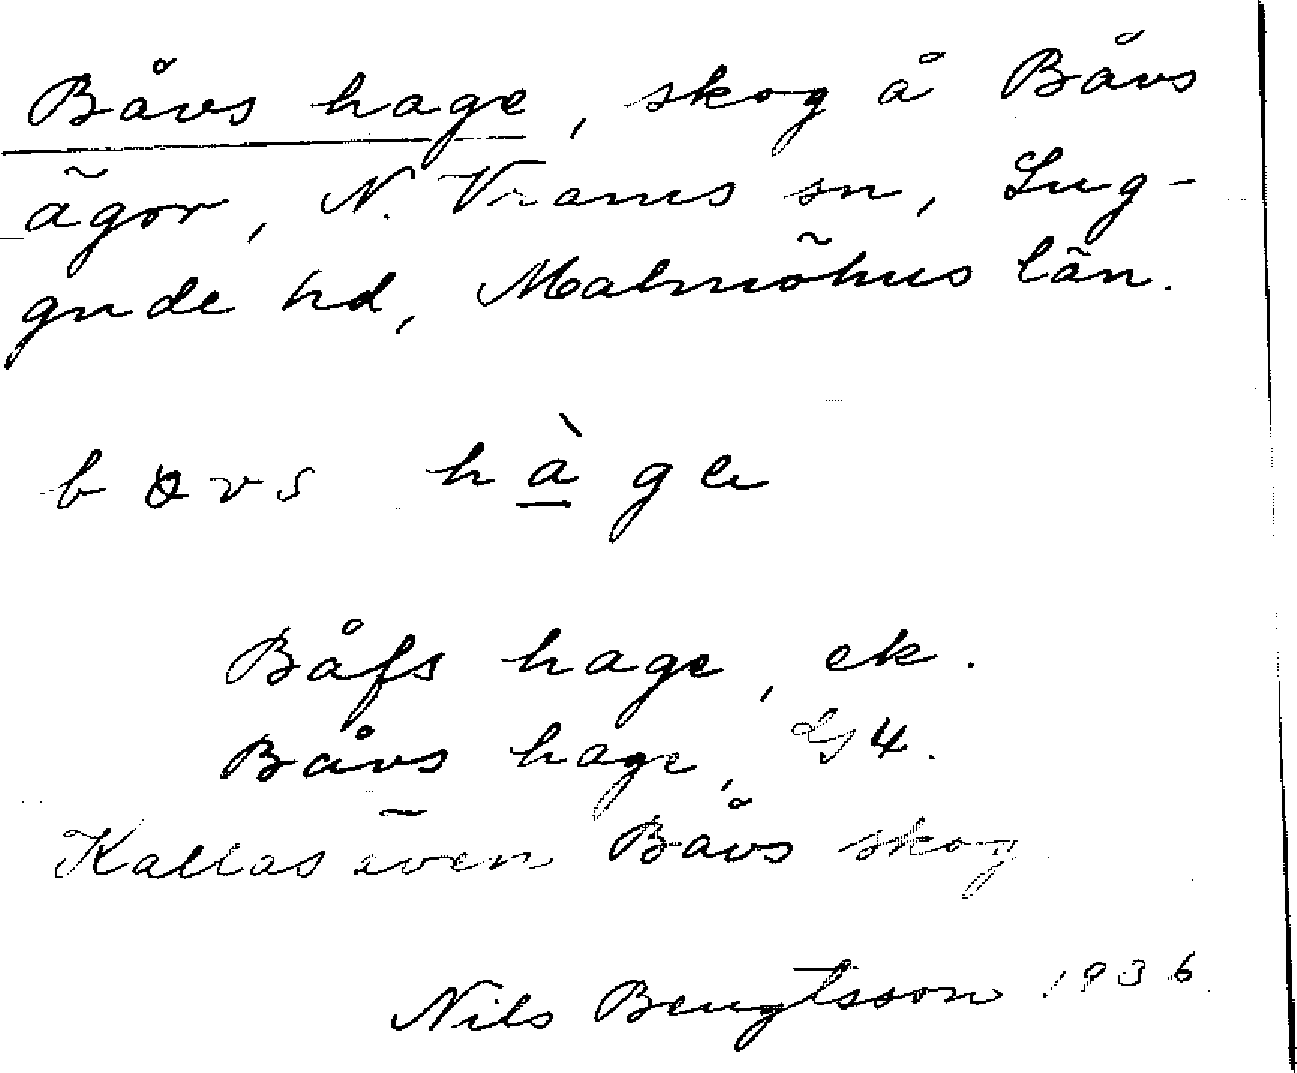 Båvs hage, skog å Båvs
ägor, N. Vrams sn, Lug-
gude hd, Malmöhus län.
håge
Båfs hage, ek.
Båvs hage, 4.
Kallas även Båvs skog
Nils Bengtsson 1936.